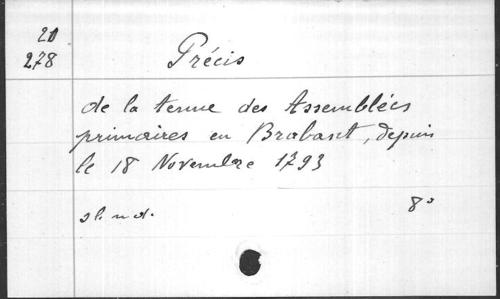 20
278
Précis
de la tenue des Assemblées
primaires en Brabant, depuis
le 18 Novembre 1793
sl. n d.
8°